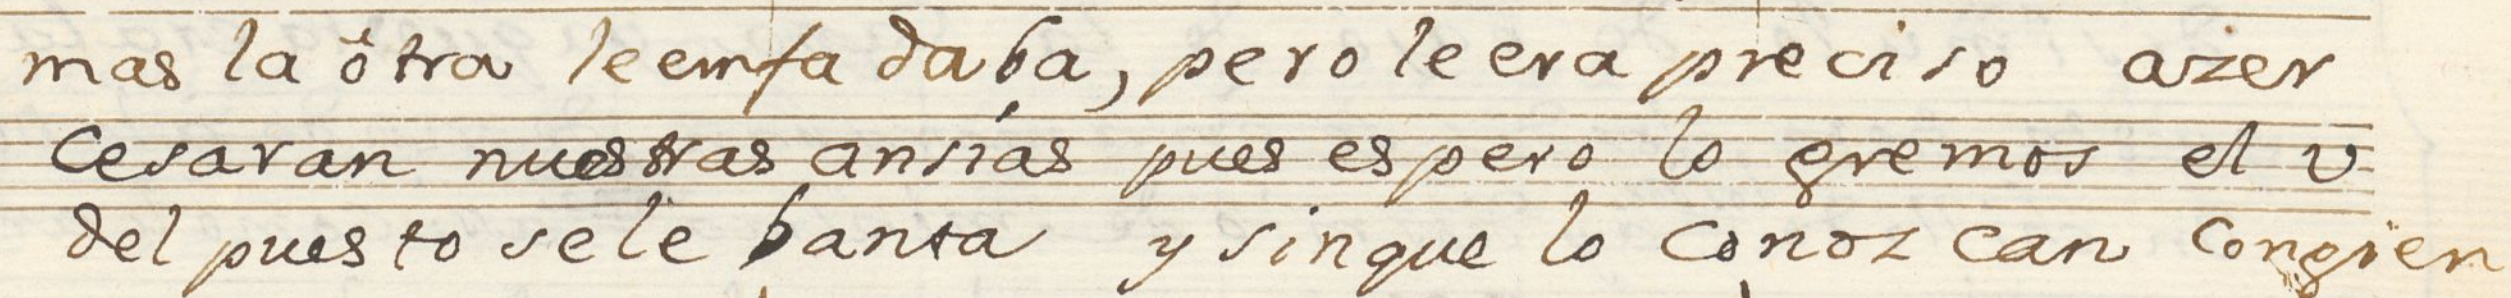 mas la òtra leemfadaba, pero le era preciso azer
Cesaran nuestras ansias pues espero logremos el v
del puesto se lebanta y sin que lo Conozcan Congien